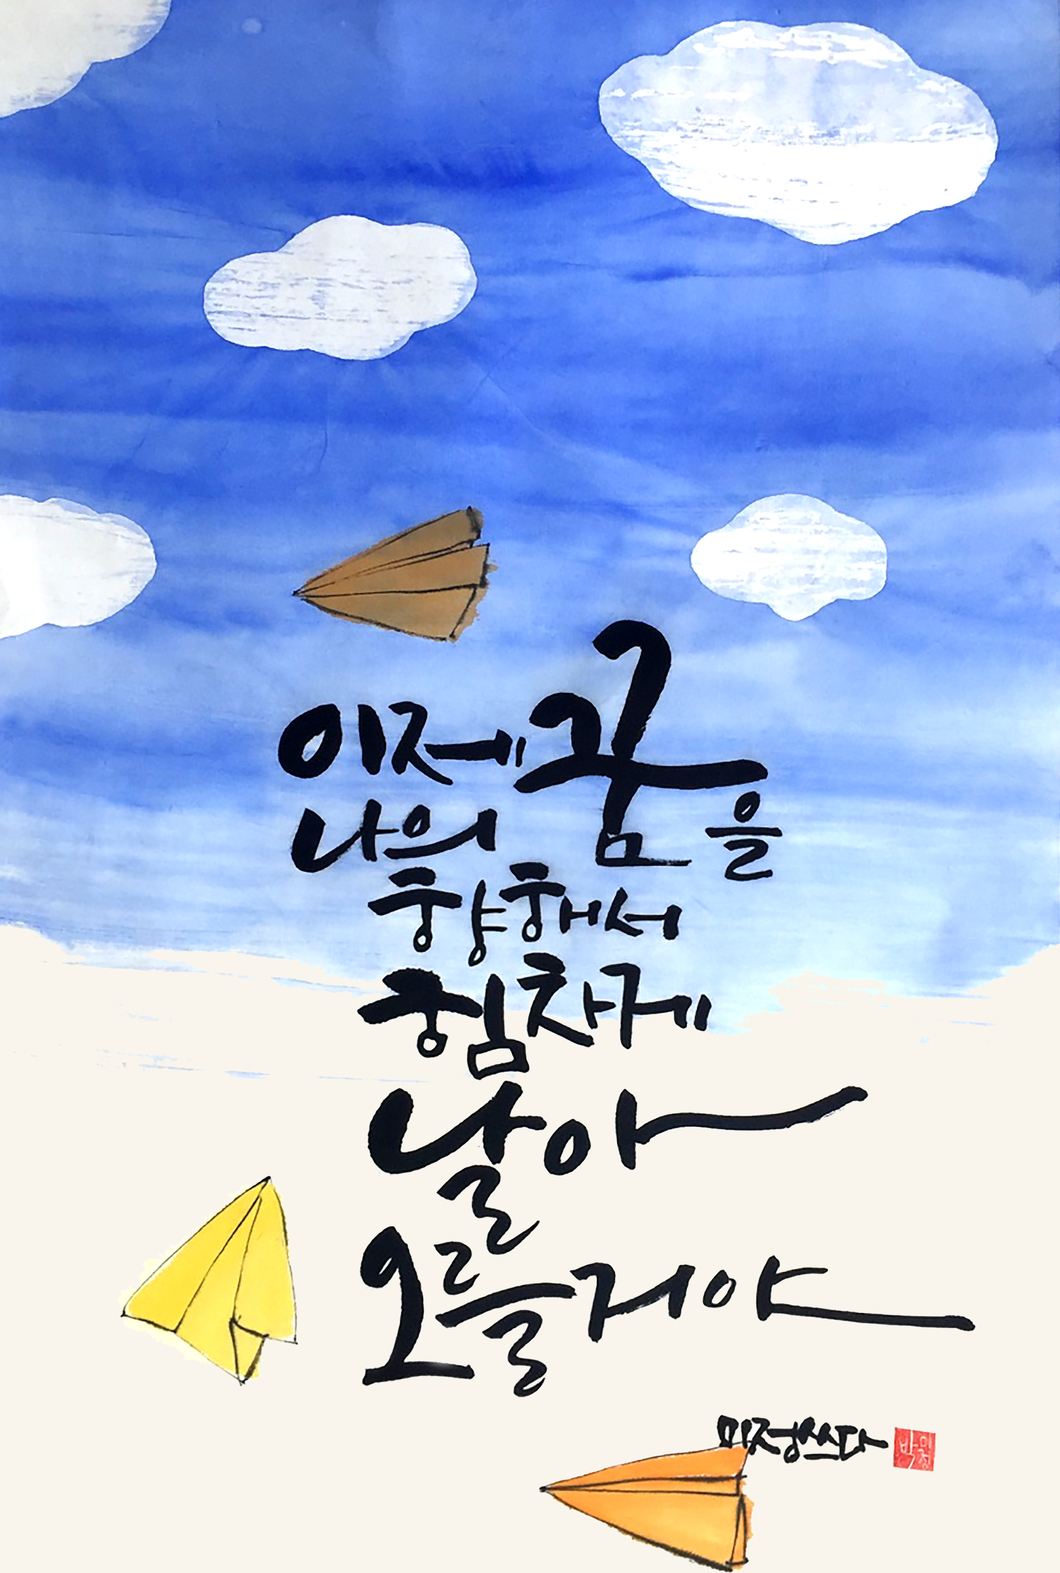 이제
나의 꿈을
향해서
힘차게
날아
오를거야
미정쓰다